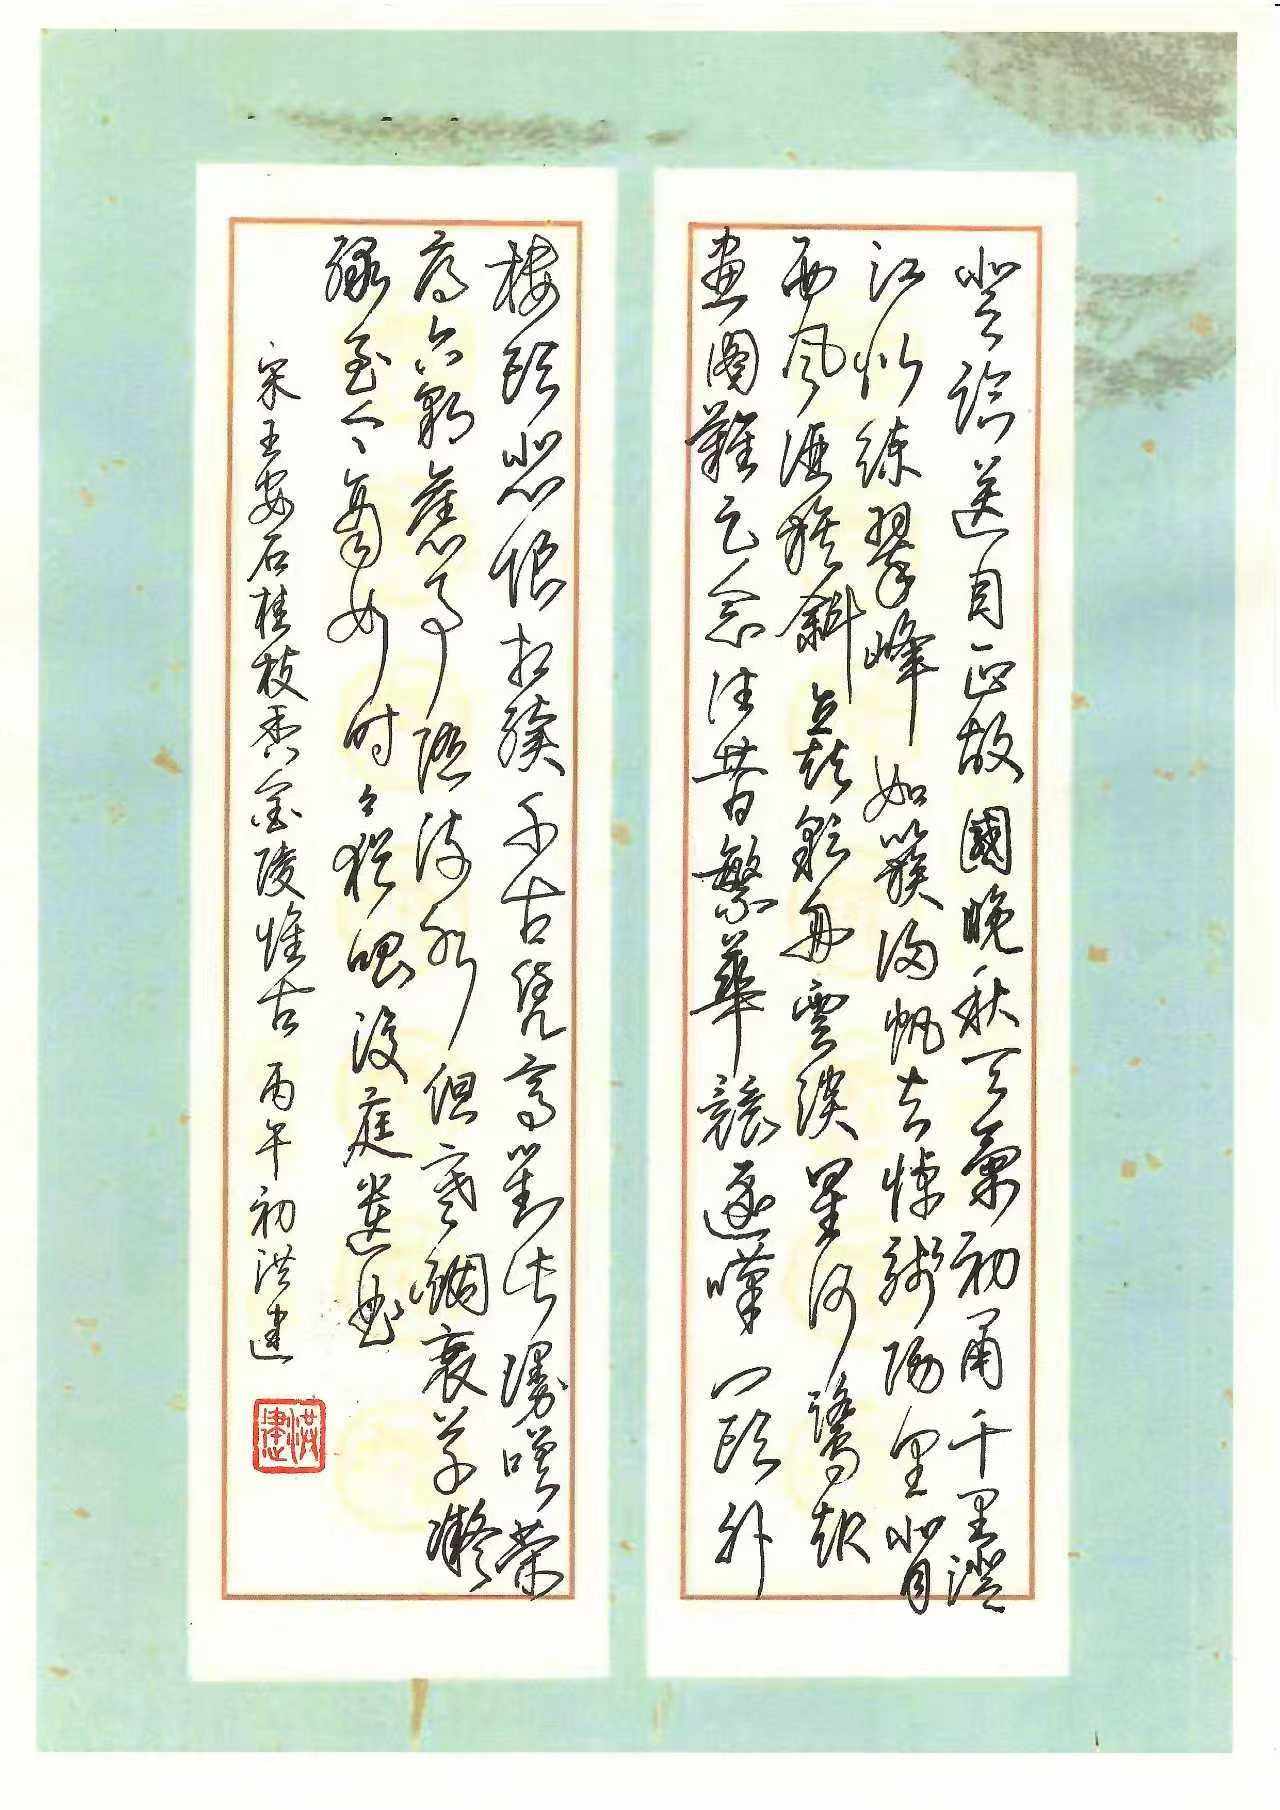 登临送目正故國晚秋天氣初肅千里澄
江似練翠峰如簇归帆去棹残陽里背
西风酒旗斜矗彩舟雲淡星河鷺起
畫圖難足念往昔繁華競逐嘆门頭外
楼頭悲恨相續千古凭高對此漫嗟荣
辱六朝舊事随流水但寒烟衰草凝
绿至今商女时々犹唱後庭遗曲
宋王安石桂枝香金陵懷古 丙午初洪建
洪建